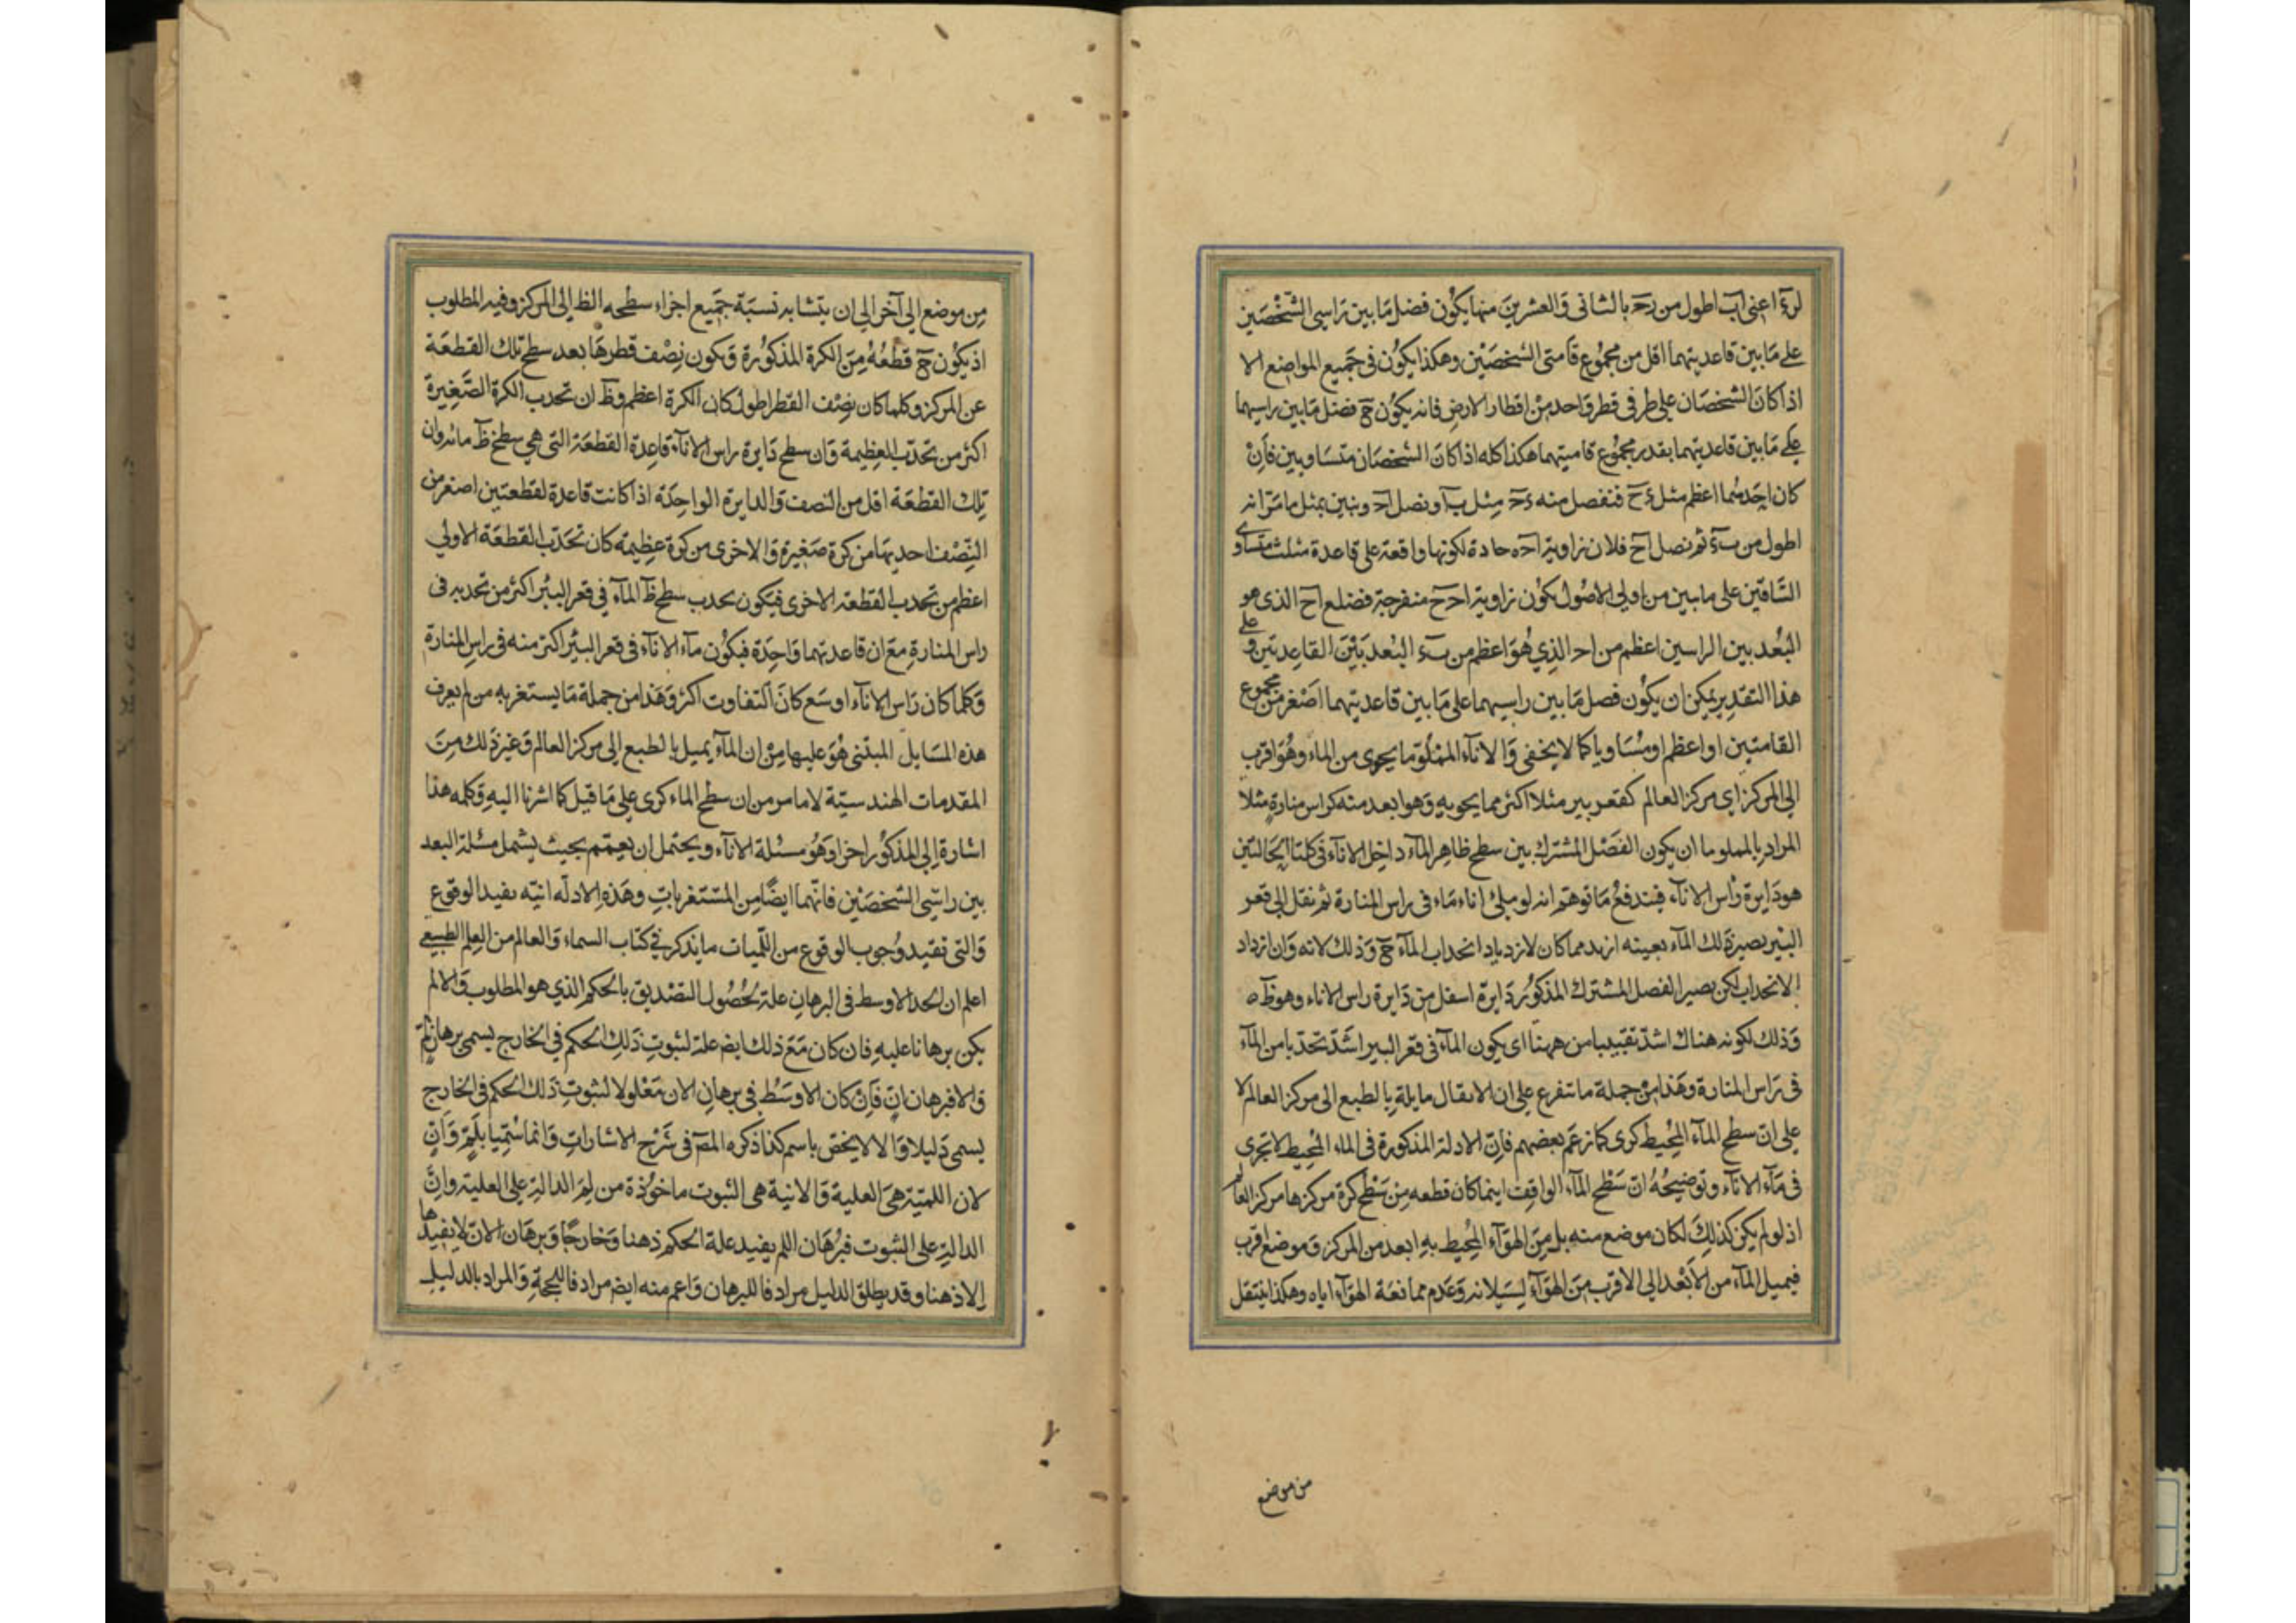 لرء اعنى اب اطول من رح بالثانى والعشرين منها يكون فضل ما بين راسى الشخصين
على ما بين قاعدتيهما اقل من مجموع قامتى الشخصين وهكذا يكون فى جميع المواضع الا
اذا كان الشخصان على طرفى قطر واحد من اقطار الارض فانه يكون ح فضل ما بين راسيهما
على ما بين قاعدتيهما بقدر مجموع قامتيهما هكذا كله اذا كان الشخصان متساويين فان
كان احدهما اعظم مثل ءح فنفصل منه ءح مثل ب آ ونصل اح ونبين بمثل ما مر انه
اطول من بء ثم نصل اح فلان زاوية احه حادة لكونها واقعة على قاعدة مثلث متساوى
الساقين على ما بين من اولى الاصول يكون زاوية احح منفرجة فضلع اح الذى هو
البعد بين الراسين اعظم من اح الذي هو اعظم من بء البعد بين القاعدتين وعلى
هذا التقدير يمكن ان يكون فصل ما بين راسيهما على ما بين قاعدتيهما اصغر من مجموع
القامتين او اعظم او مساويا كما لا يخفى والاناء المملو ما يحوى من الماء وهو اقرب
الى المركز اى مركز العالم كقعر بير مثلا اكثر مما يحويه وهو ابعد منه كراس منارة مثلا
المراد بالمملو ما ان يكون الفصل المشترك بين سطح ظاهر الماء داخل الاناء فى كلتا الحالتين
هو دايرة رأس الاناء فيندفع ما توهم انه لو ملئ اناء ماء فى راس المنارة ثم نقل الى قعر
البير يصير ذلك الماء بعينه ازيد مما كان لازدياد انحداب الماء ح وذلك لانه وان ازداد
الانحداب لكن يصير الفصل المشترك المذكور دايرة اسفل من دايرة راس الاناء وهو ظ ه
وذلك لكونه هناك اشد تقبيبا من ههنا اى يكون الماء فى قعر البير اشد تحدبا من الماء
فى راس المنارة وهذا من جملة ما تتفرع على ان الاثقال مايلة بالطبع الى مركز العالم لا
على ان سطح الماء المحيط كرى كما زعم بعضهم فان الادلة المذكورة فى الماء المحيط لا تجرى
فى ماء الاناء وتوضيحه ان سطح الماء الواقف اينما كان قطعه من سطح كرة مركزها مركز العالم
اذ لو لم يكن كذلك لكان موضع منه بل من الهواء المحيط به ابعد من المركز وموضع اقرب
فيميل الماء من الابعد الى الاقرب من الهواء لسيلانه وعدم ممانعة الهواء اياه وهكذا ينتقل
من موضع
من موضع الى آخر الى ان يتشابه نسبة جميع اجزاء سطحه الظ الى المركز وفيه المطلوب
اذ يكون ح قطعه من الكرة المذكورة ويكون نصف قطرها بعد سطح تلك القطعة
عن المركز وكلما كان نصف القطر اطول كان الكرة اعظم وظ ان تحدب الكرة الصغيرة
اكثر من تحدب العظيمة وان سطح دايرة راس الاناء قاعدة القطعة التى هى سطح ظ مائه وان
تلك القطعة اقل من النصف والدايرة الواحدة اذا كانت قاعدة لقطعتين اصغر من
النصف احديهما من كرة صغيرة والاخرى من كرة عظيمة كان تحدب القطعة الاولى
اعظم من تحدب القطعة الاخرى فيكون تحدب سطح ظ الماء فى قعر البئر اكثر من تحدبه فى
راس المنارة مع ان قاعدتهما واحدة فيكون ماء الاناء فى قعر البئر اكثر منه فى راس المنارة
وكلما كان راس الاناء اوسع كان التفاوت اكثر وهذا من جملة ما يستغربه من لم يعرف
هذه المسايل المبتنى هو عليها من ان الماء يميل بالطبع الى مركز العالم وغير ذلك من
المقدمات الهندسية لا ما مر من ان سطح الماء كرى على ما قيل كما اشرنا اليه وكلمه هذا
اشارة الى المذكور اخرا وهو مسئلة الاناء ويحتمل ان يعمم بحيث يشمل مسئلة البعد
بين راسى الشخصين فانهما ايضا من المستغربات وهذه الادله انيه يفيد الوقوع
والتى تفيد وجوب الوقوع من اللميات ما يذكر فى كتاب السماء والعالم من العلم الطبيعى
اعلم ان الحد الاوسط فى البرهان علة لحصول التصديق بالحكم الذي هو المطلوب والا لم
يكن برهانا عليه فان كان مع ذلك ايض علة لثبوت ذلك الحكم فى الخارج يسمى برهان لم
والا فبرهان ان فان كان الاوسط فى برهان الان معلولا لثبوت ذلك الحكم فى الخارج
يسمى دليلا والا لا يخص باسم كذا ذكره المص فى شرح الاشارات وانما سميا بلم وان
لان اللمية هى العلية والانية هى الثبوت ماخوذة من لم الدالة على العلية وان
الدالة على الثبوت فبرهان اللم يفيد علة الحكم ذهنا وخارجا وبرهان الان لا يفيدها
الا ذهنا وقد يطلق الدليل مرادفا للبرهان واعم منه ايض مرادفا للحجة والمراد بالدليل